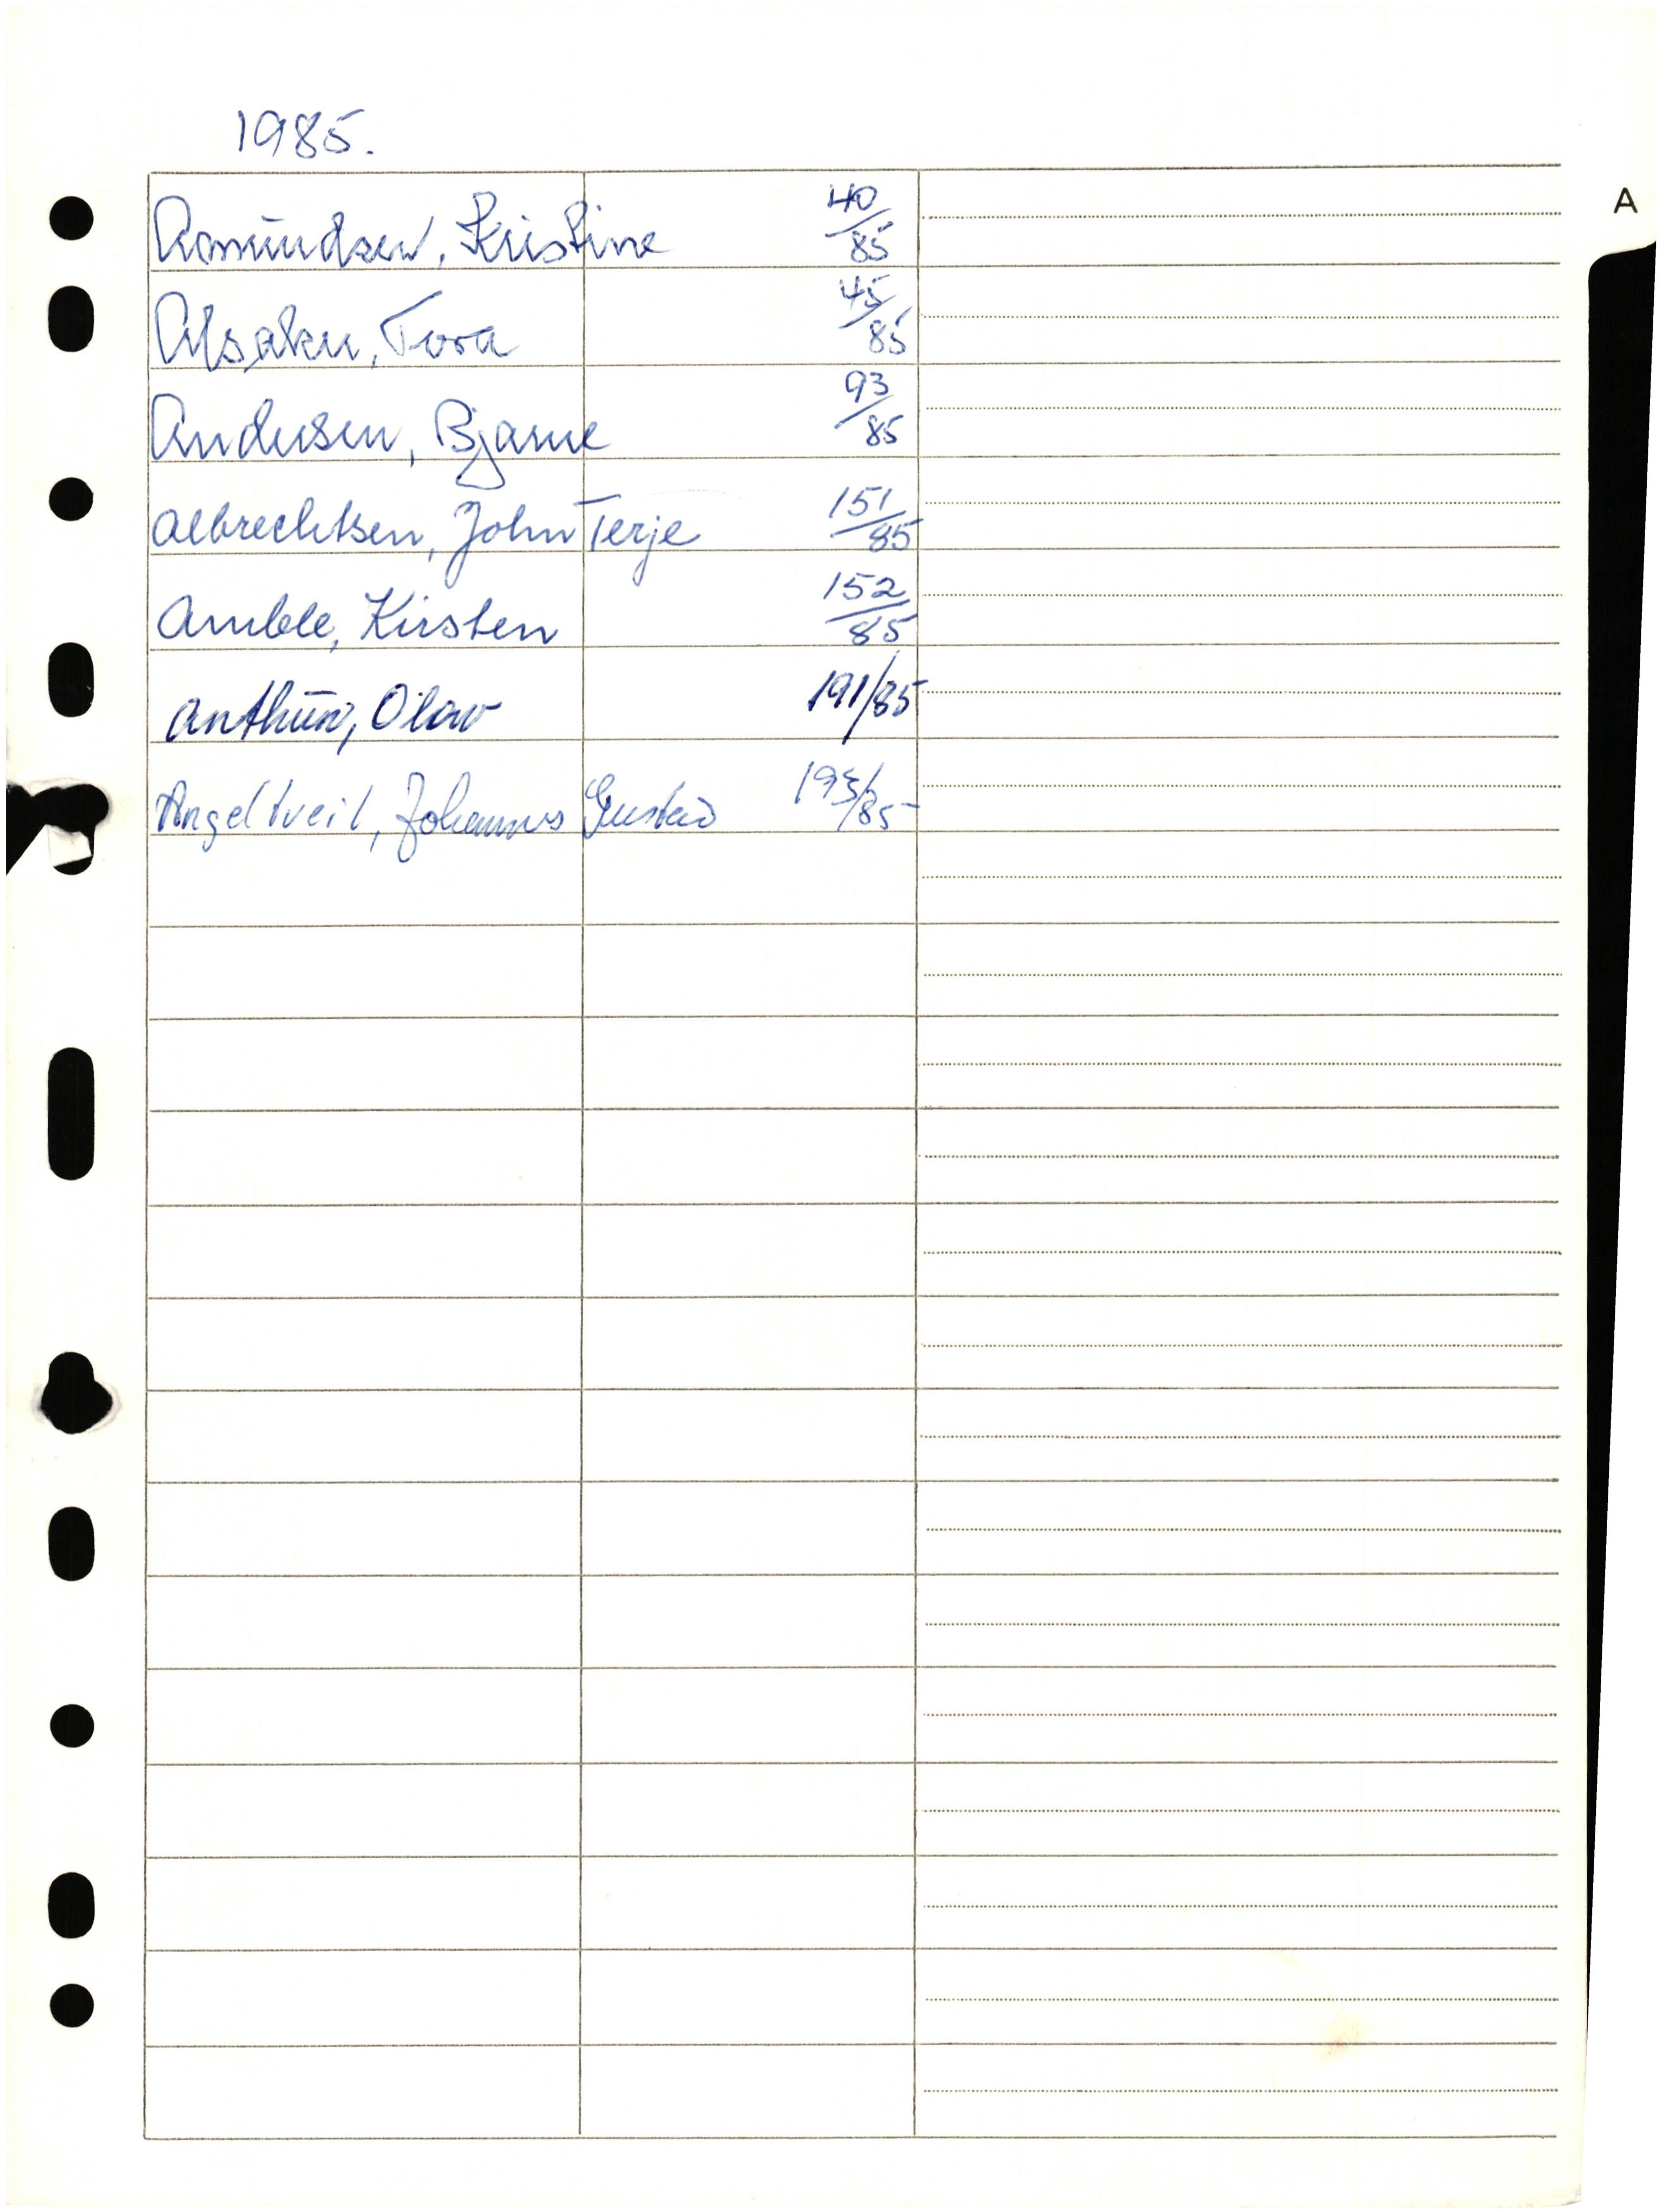 1985.
A
Asmundsen, Kristine 40/85
Alsaker, Tora 45/85
Andersen, Bjarne 93/85
Albrechtsen, John Terje 151/85
Amble, Kirsten 152/85
Anthun, Olav 191/85
Angeltveit, Johannes Gustav 193/85